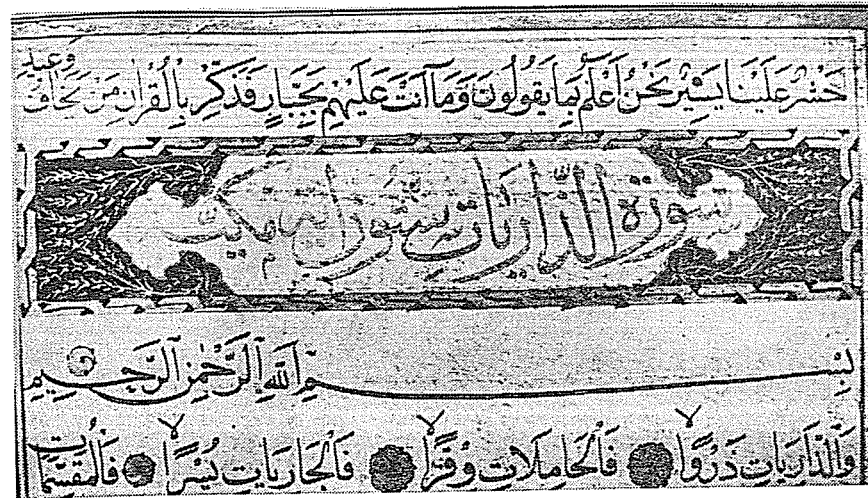 حَشْرٌ عَلَيْنَا يَسِيرٌ نَحْنُ أَعْلَمُ بِمَا يَقُولُونَ وَمَا أَنْتَ عَلَيْهِمْ بِجَبَّارٍ فَذَكِّرْ بِالْقُرْاٰنِ مَنْ يَخَافُ وَعِيدِ
سورة الذاريات ستون اية مكية
بِسْمِ اللّٰهِ الرَّحْمٰنِ الرَّحِيمِ
وَالذَّارِيَاتِ ذَرْوًا فَالْحَامِلَاتِ وِقْرًا فَالْجَارِيَاتِ يُسْرًا فَالْمُقَسِّمَاتِ